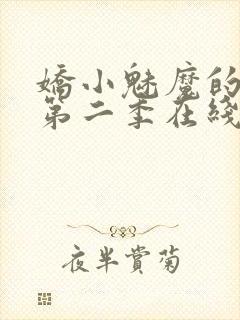 嬌小魅魔的
第二季在綫
夜半賞菊